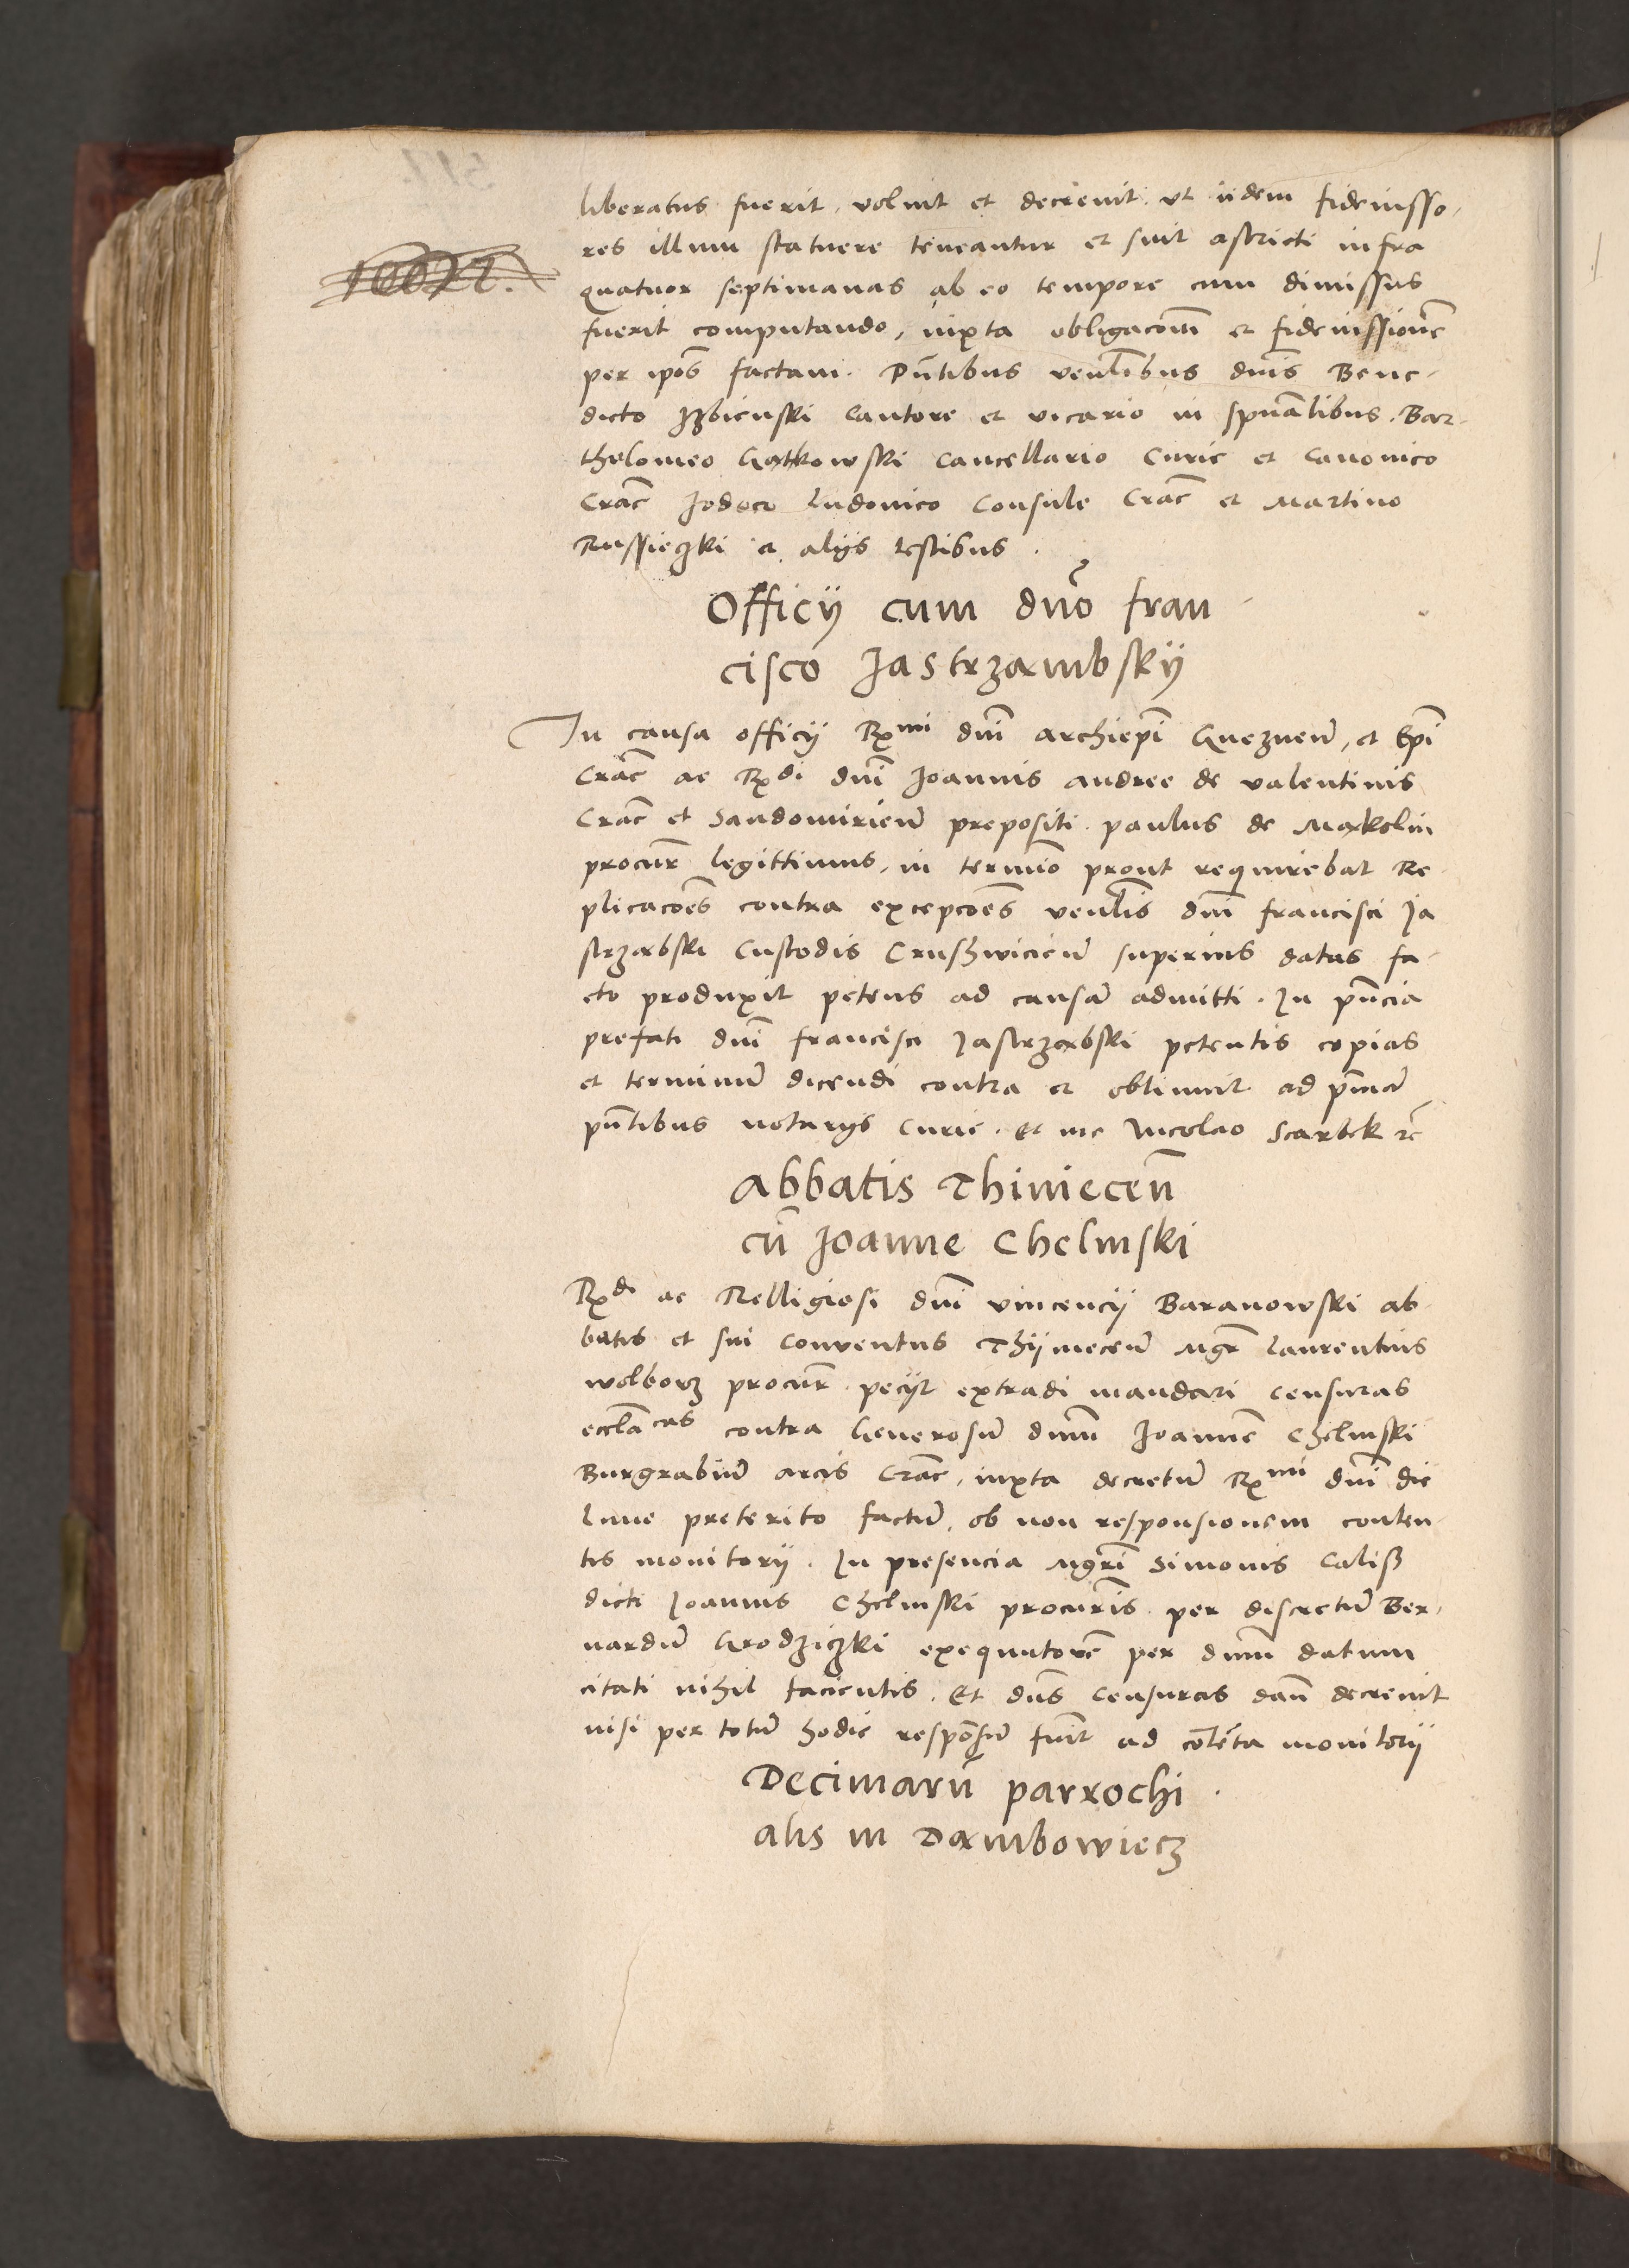 liberatus fuerit, voluit et decrevit ut iidem fideiusso-
res illum statuere teneantur et sint astricti infra
quatuor septimanas ab eo tempore cum dimissus
fuerit computando, iuxta obligacoem et fideiussione
per ipos factam. Pntibus venlibus dnis Bene-
dicto Izbienski Cantore et vicario in spualibus. Bar-
tholomeo Gątkowski Cancellario Curie et Canonico
Crac Jodoco Ludovico Consule Crac et Martino
Russieczki et alijs testibus.
Officij cum dno Fran-
cisco Jastrzambskij
In causa officij Rxmi dni archiepi Gneznen, et Epi
Crac ac Rxdi dni Joannis Andree de valentinis
Crac et Sandomirien prepositi. paulus de Mąkolin
procur legittimus, in termio prout requirebat Re-
plicacoes contra excepcoes venlis dni Francisci Ja
strząbski Custodis Crushwicien superius datas fa-
cto produxit petens ad causa admitti. In pncia
prefati dni Francisci Jastrząbski petentis copias
et terminu dicendi contra et obtinuit ad prima
pntibus notarijs Curie. Et me Nicolao Scarbek rc
Abbatis Thiniecen
cu Joanne Chelmski
Rxdi ac Relligiosi dni Vincencij Baranowski ab-
batis et sui Conventus Thijniecen Mgr Laurentius
wolborz procur. pecijt extradi mandari censuras
ecclacas contra Generosu dnum Joanne Chelmski
Burgrabiu arcis Crac, iuxta decretu Rxmi dni die
Lune preterito factu, ob non responsionem conten-
tis monitorij. In presencia Mgri Simonis Calisz
dicti Joannis Chelmski procuris. per discretu Ber-
nardu Grodziczki exequutore per dnum datum
citati nihil facientis. Et dns Censuras dan decrevit
nisi per totu hodie responsu fuit ad cotenta monitorij
Decimaru parrochi
alis in Dambowiecz